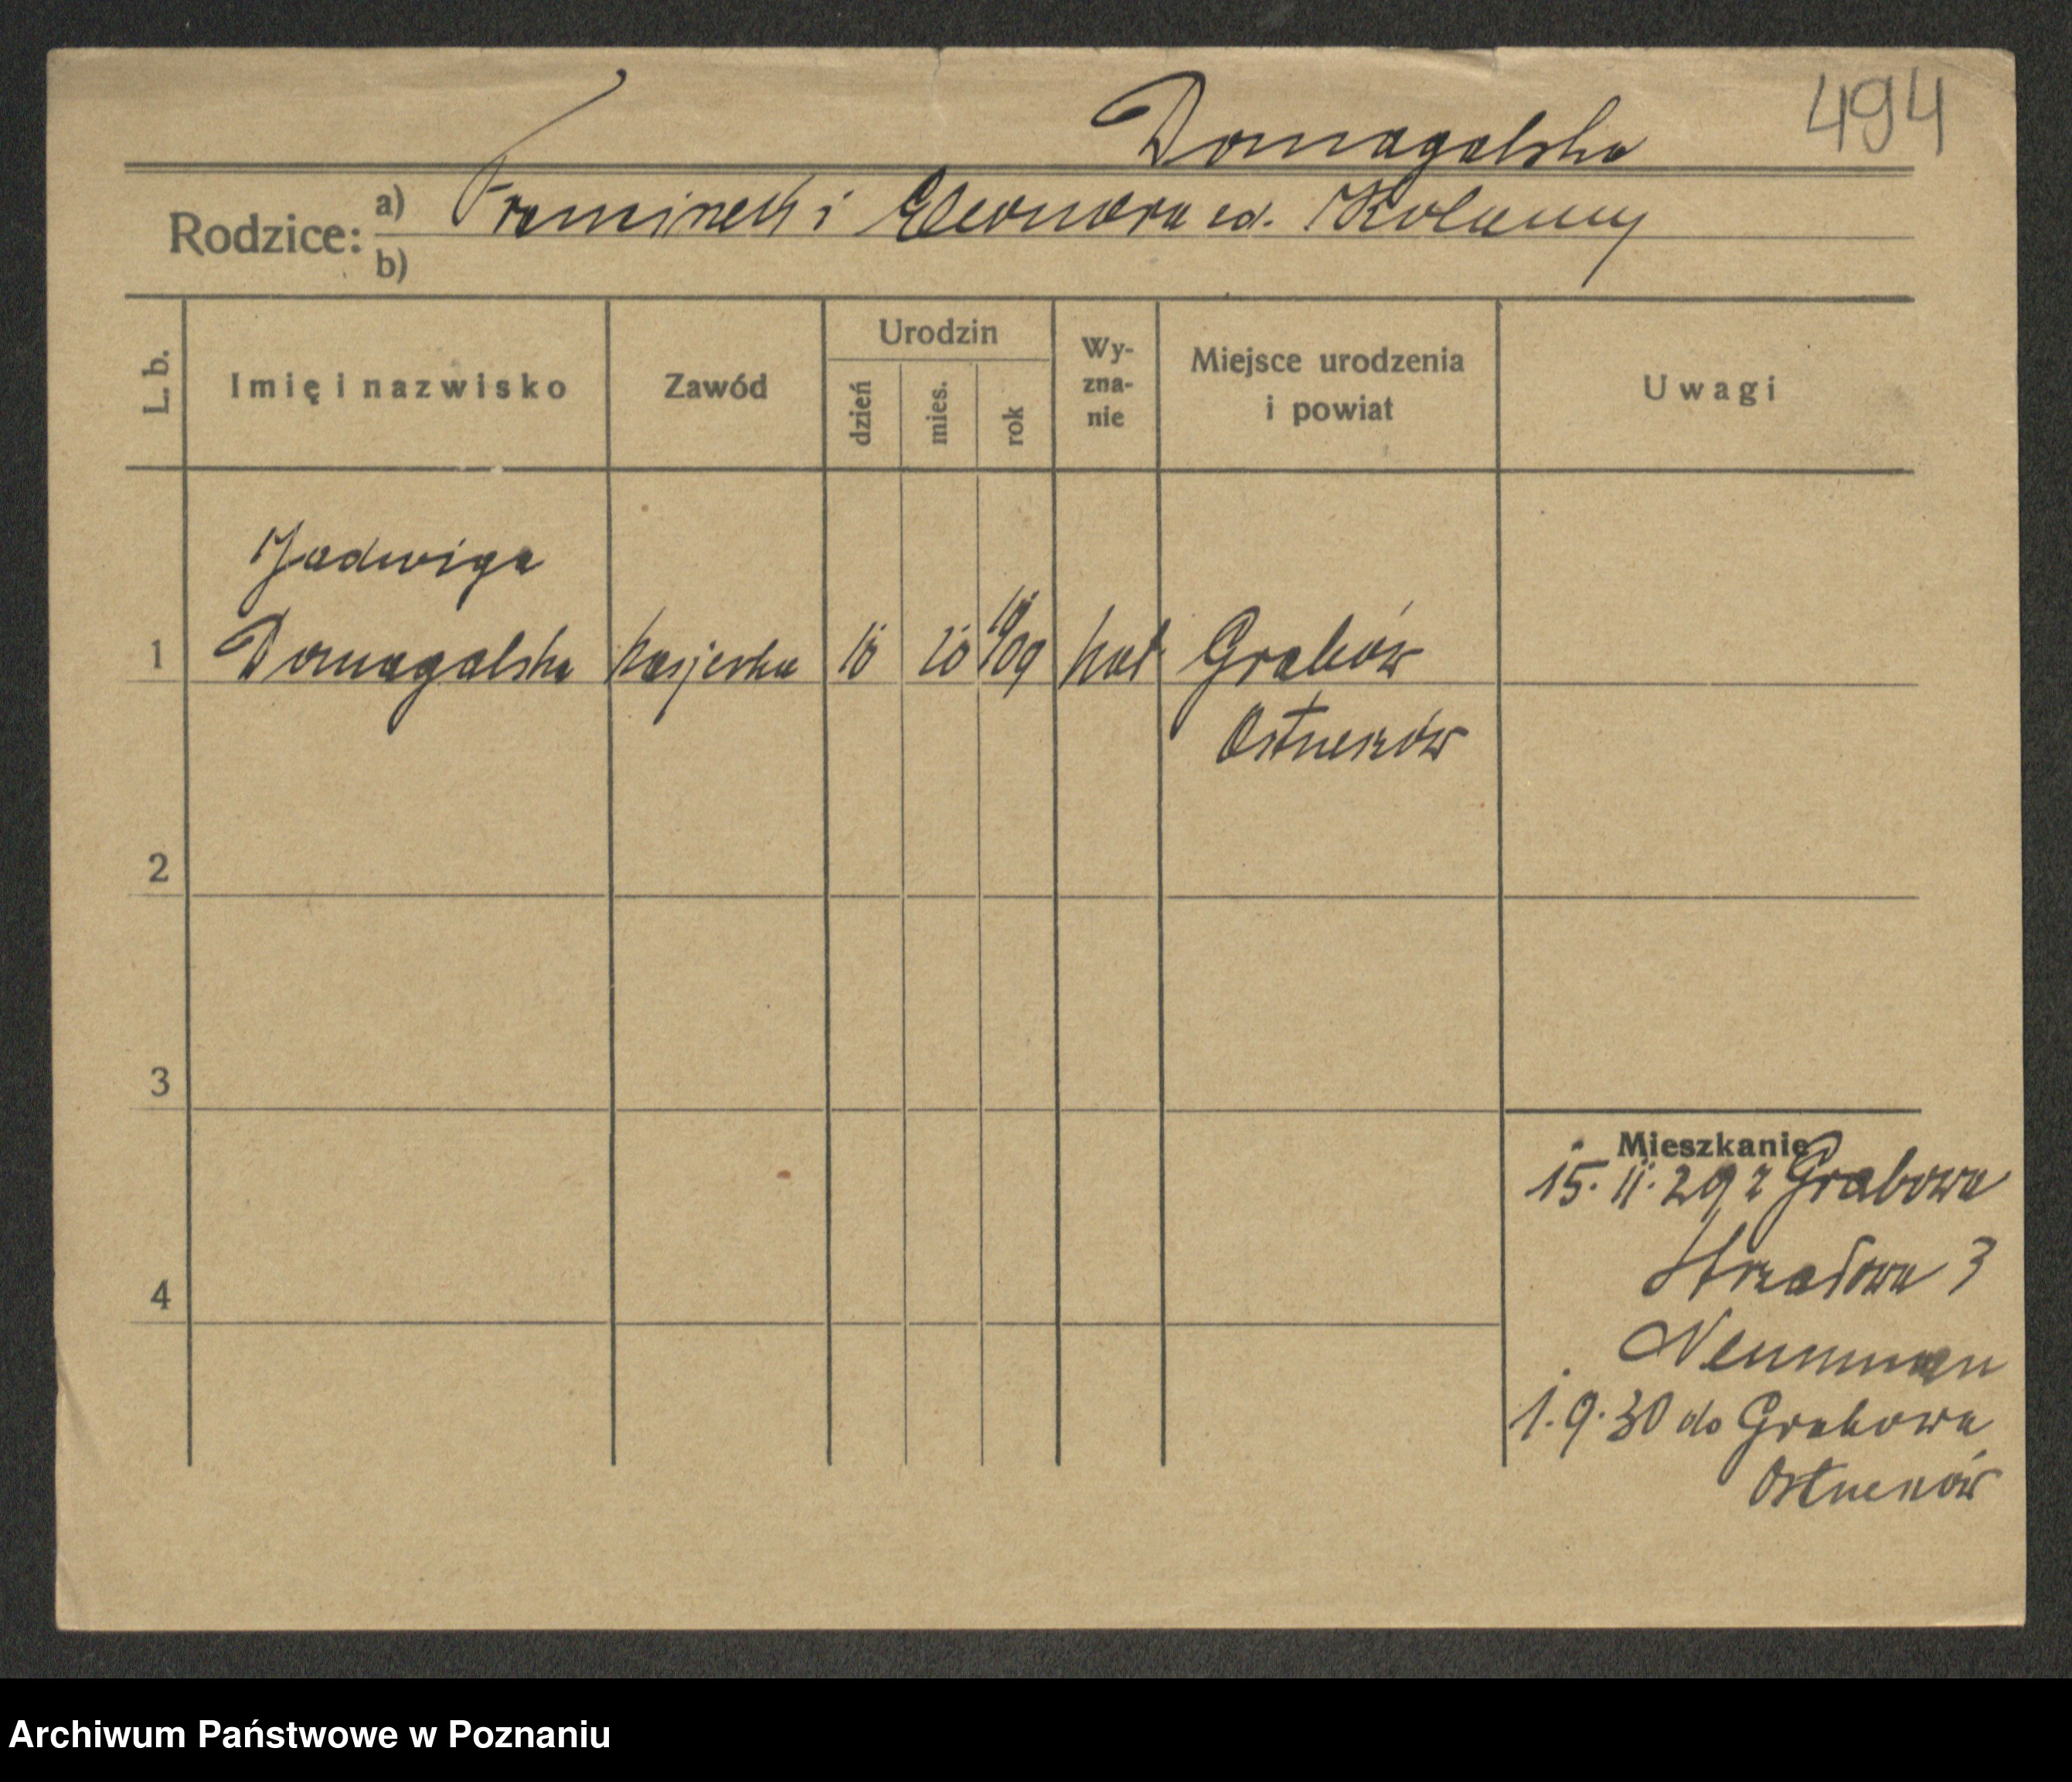 Domagalska 494
Rodzice: a) Franciszek i Eleonora zd.
b)
L. b. Imię i nazwisko Zawód Urodzin dzień mies. rok Wy-zna-nie Miejsce urodzenia i powiat Uwagi
Jadwiga
1 Domagalska kasjerka 10 10 1909 kat Grabów
Ostrzeszów
2
3
4
Mieszkanie
15. 11. 29 z Grabowa
Strzałowa 3
Neumman
1. 9. 30 do Grabowa
Ostrzeszów
Archiwum Państwowe w Poznaniu